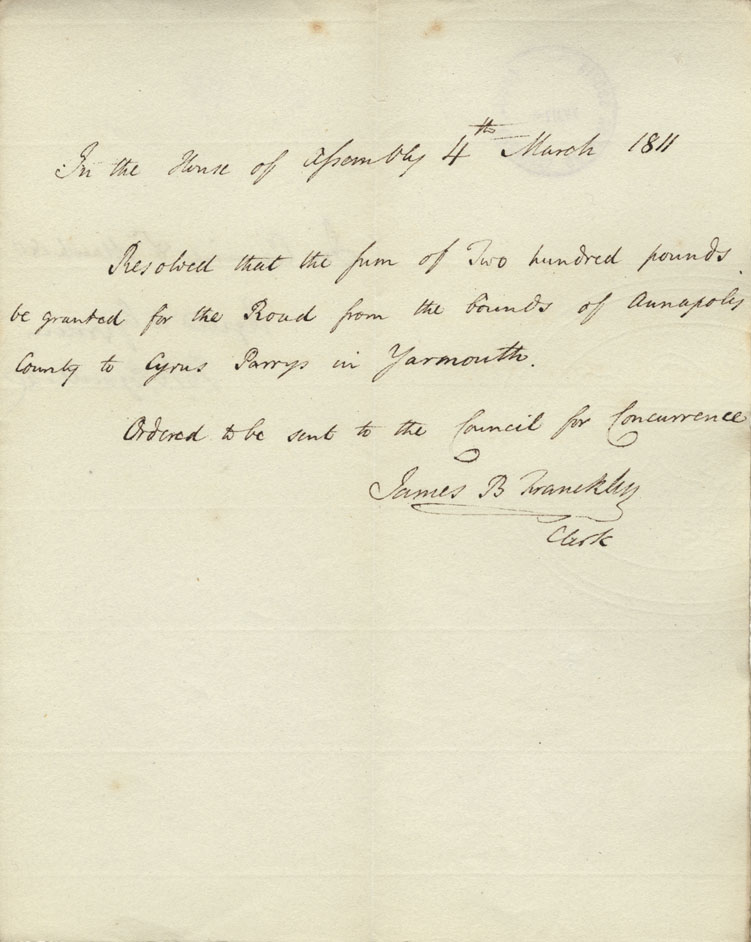 In the House of Assembly 4th March 1811
Resolved that the sum of Two hundred pounds
be granted for the Road from the bounds of Annapolis
County to Cyrus Parrys in Yarmouth.
Ordered to be sent to the Council for Concurrence
James B Francklin
Clerk